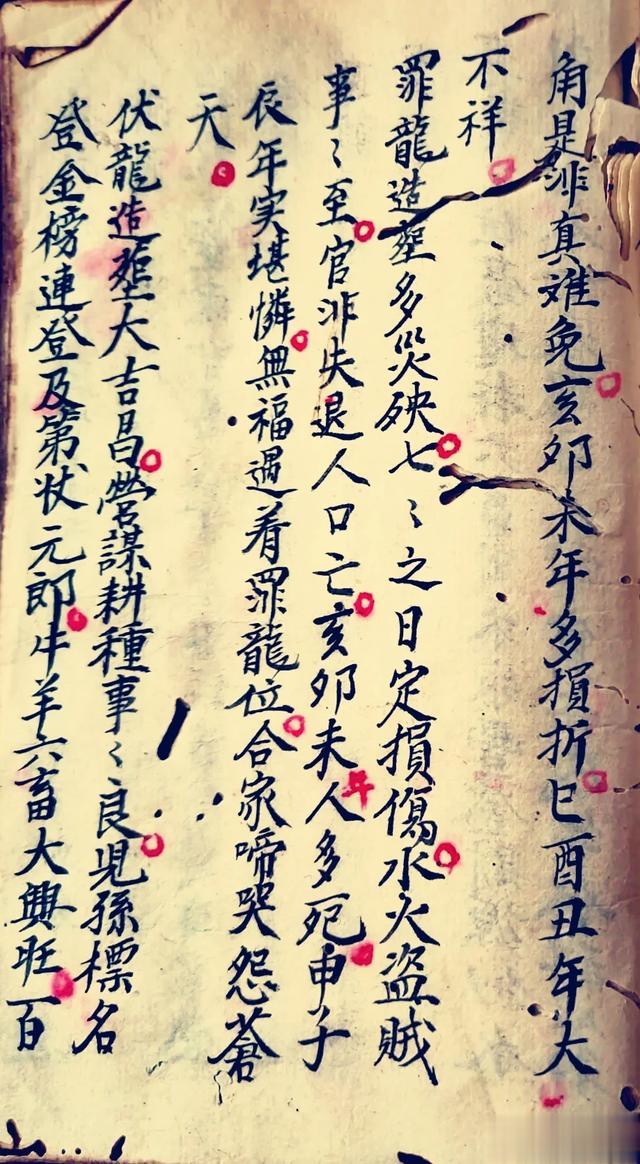 角是非真难免亥卯未年多損折巳酉丑年大
不祥
罪龍造塟多災殃七〻之日定損傷水火盗贼
事〻至官非失退人口亡亥卯未年人多死申子
辰年实堪憐無福遇着罪龍位合家啼哭怨蒼
天
伏龍造塟大吉昌营謀耕種事〻良児孫標名
登金榜連登及第状元郎牛羊六畜大興旺百